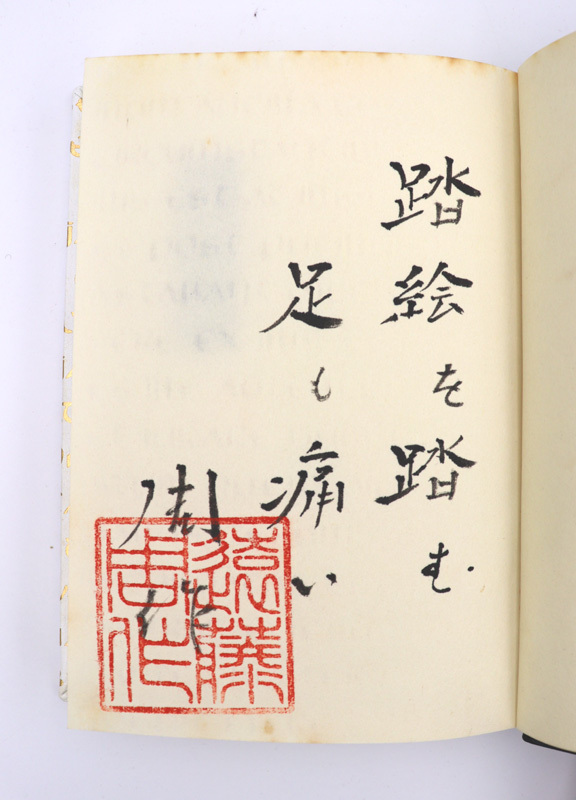 踏絵を踏む
足も痛い
周作
遠藤
周作